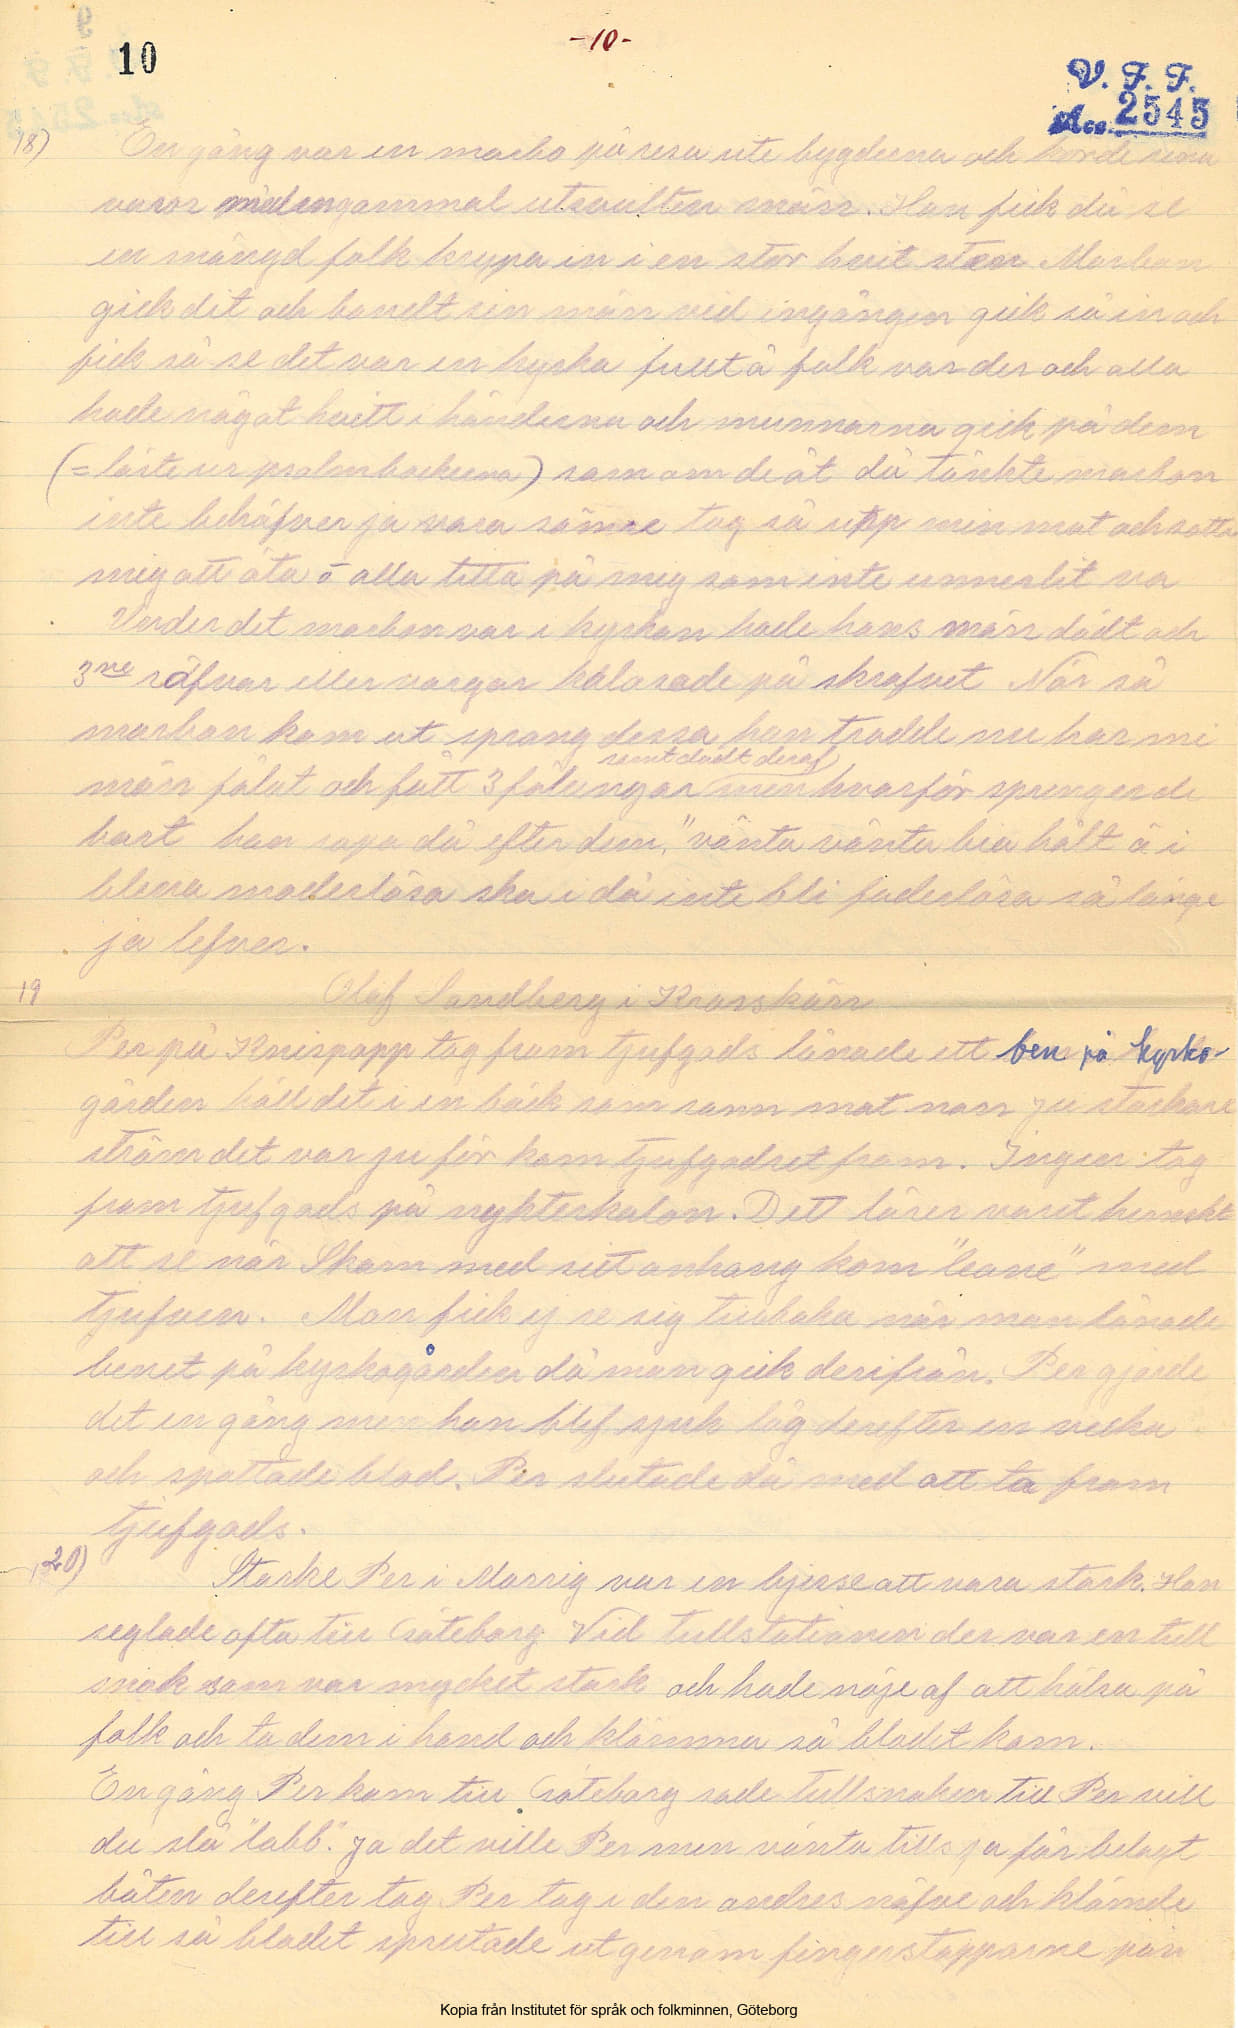 10
-10-
V. F. F.
Acc. 2545
18) En gång var en marbo på resa ute bygderna och körde sina
varor med en gammal utsvulten märr. Han fick då se
en mängd folk krypa in i en stor hvit sten Marbon
gick dit och bandt sin märr vid ingången gick så in och
fick så se det var en kyrka fullt å folk var der och alla
hade något hvitt i händerna och munnarna gick på dem
(= läste ur psalmböckerna) som om de åt då tänkte marbon
inte behöfver ja vara sämre tog så upp min mat och satte
mig att äta å alla titta på mig som inte unnerlit va
Under det marbon var i kyrkan hade hans märr dödt och
3ne räfvar eller vargar kalasade på skrofvet När så
marbon kom ut sprang dessa han trodde nu har mi
samt dödt deraf
märr fölat och fått 3 fölungar men hvarför springer de
bort han ropa då efter dem, "vänta vänta bia hält ä i
blena moderlösa ska i då inte bli faderlösa så länge
ja lefver.
19 Olof Sandberg i Krosskärr
Per på Knispapp tog fram tjufgods lånade ett ben på kyrko-
gården höll det i en bäck som rann mot norr Ju starkare
ström det var ju för kom tjufgodset fram. Inger tog
fram tjufgods på nykterkalon. Dett lärer varit hemskt
att se när Skam med sitt anhang kom "leane" med
tjufven. Man fick ej se sig tillbaka när man lånade
benet på kyrkogården då man gick derifrån. Per gjorde
det en gång men han blef sjuk låg derefter en vecka
och spottade blod. Per slutade då med att ta fram
tjufgods.
20) Starke Per i Marrig var en bjesse att vara stark. Han
seglade ofta till Göteborg Vid tullstationen der var en tull
snok som var mycket stark och hade nöje af att hälsa på
folk och ta dem i hand och klämma så blodet kom.
En gång Per kom till Göteborg sade tullsnoken till Per vill
du slå "labb". Ja det ville Per men vänta tills ja får belagt
båten derefter tog Per tag i den andres näfve och klämde
till så blodet sprutade ut genom fingerstopparne på'n
Kopia från Institutet för språk och folkminnen, Göteborg